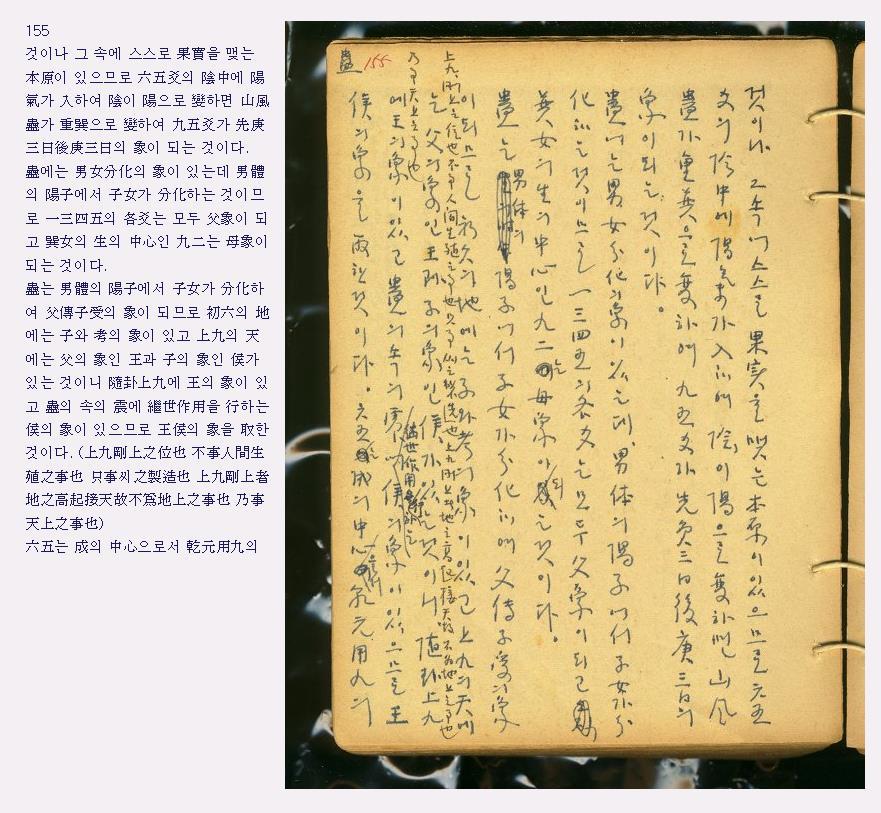 155
것이나 그 속에 스스로 果實을 맺는
本原이 있으므로 六五爻의 陰中에 陽
氣가 入하여 陰이 陽으로 變하면 山風
蠱가 重巽으로 變하여 九五爻가 先庚
三日後庚三日의 象이 되는 것이다.
蠱에는 男女分化의 象이 있는데 男體
의 陽子에서 子女가 分化하는 것이므
로 一三四五의 各爻는 모두 父象이 되
고 巽女의 生의 中心인 九二는 母象이
되는 것이다.
蠱는 男體의 陽子에서 子女가 分化하
여 父傳子受의 象이 되므로 初六의 地
에는 子와 考의 象이 있고 上九의 天
에는 父의 象인 王과 子의 象인 侯가
있는 것이니 隨卦上九에 王의 象이 있
고 蠱의 속의 震에 繼世作用을 行하는
侯의 象이 있으므로 王侯의 象을 取한
것이다. (上九剛上之位也 不事人間生
殖之事也 只事씨之製造也 上九剛上者
地之高起接天故不爲地上之事也 乃事
天上之事也)
六五는 成의 中心으로서 乾元用九의
蠱 155
것이나 그 속에 스스로 果実을 맺는 本原이 있으므로 六五
爻의 陰中에 陽氣가 入하여 陰이 陽으로 變하면 山風
蠱가 重巽으로 變하여 九五爻가 先庚三日後庚三日의
象이 되는 것이다.
蠱에는 男女分化의 象이 있는데 男体의 陽子에서 子女가 分
化하는 것이므로 一三四五의 各爻는 모두 父象이 되고
巽女의 生의 中心인 九二는 母象이 되는 것이다.
蠱는 男体의 陽子에서 子女가 分化하여 父傳子受의 象
이 되므로 初六의 地에는 子와 考의 象이 있고 上九의 天에
는 父의 象인 王과 子의 象인 侯가 있는 것이니 隨卦上九
에 王의 象이 있고 蠱의 속의 震에 繼世作用을 行하는 侯의 象이 있으므로 王
侯의 象을 取한 것이다. 六五는 成의 中心으로서 乾元用九의
上九剛上之位也 不事人間生殖之事也 只事씨之製造也 上九剛上者 地之高起接天故 不爲地上之事也
乃事天上之事也